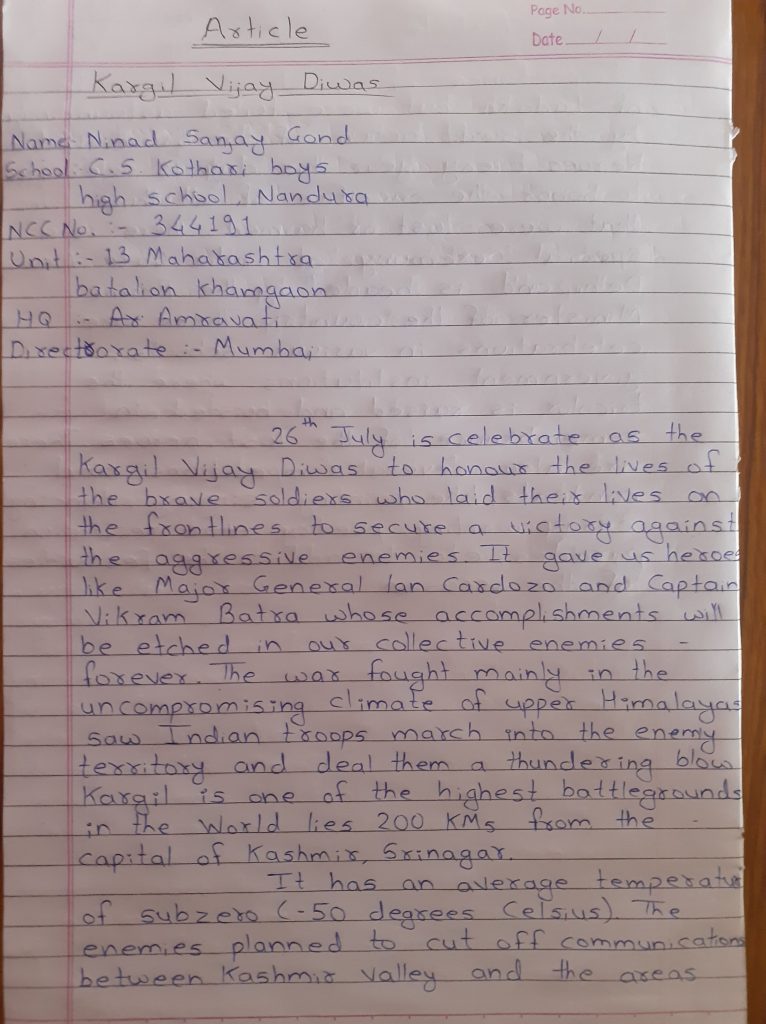 Article
Page No.
Date / /
Kargil Vijay Diwas
Name:- Ninad Sanjay Gond
School:- C.S. Kothari boys
high school, Nandura
NCC No. :- 344191
Unit :- 13 Maharashtra
batalion Khamgaon
HQ :- Ar Amravati
Directorate :- Mumbai
26th July is celebrate as the
Kargil Vijay Diwas to honour the lives of
the brave soldiers who laid their lives on
the frontlines to secure a victory against
the aggressive enemies. It gave us heroes
like Major General Ian Cardozo and Captain
Vikram Batra whose accomplishments will
be etched in our collective enemies -
forever. The war fought mainly in the
uncompromising climate of upper Himalayas
saw Indian troops march into the enemy
territory and deal them a thundering blow
Kargil is one of the highest battlegrounds
in the World lies 200 KMs from the -
capital of Kashmir, Srinagar.
It has an average temperatur
of subzero (-50 degrees Celsius). The
enemies planned to cut off communications
between Kashmir valley and the areas